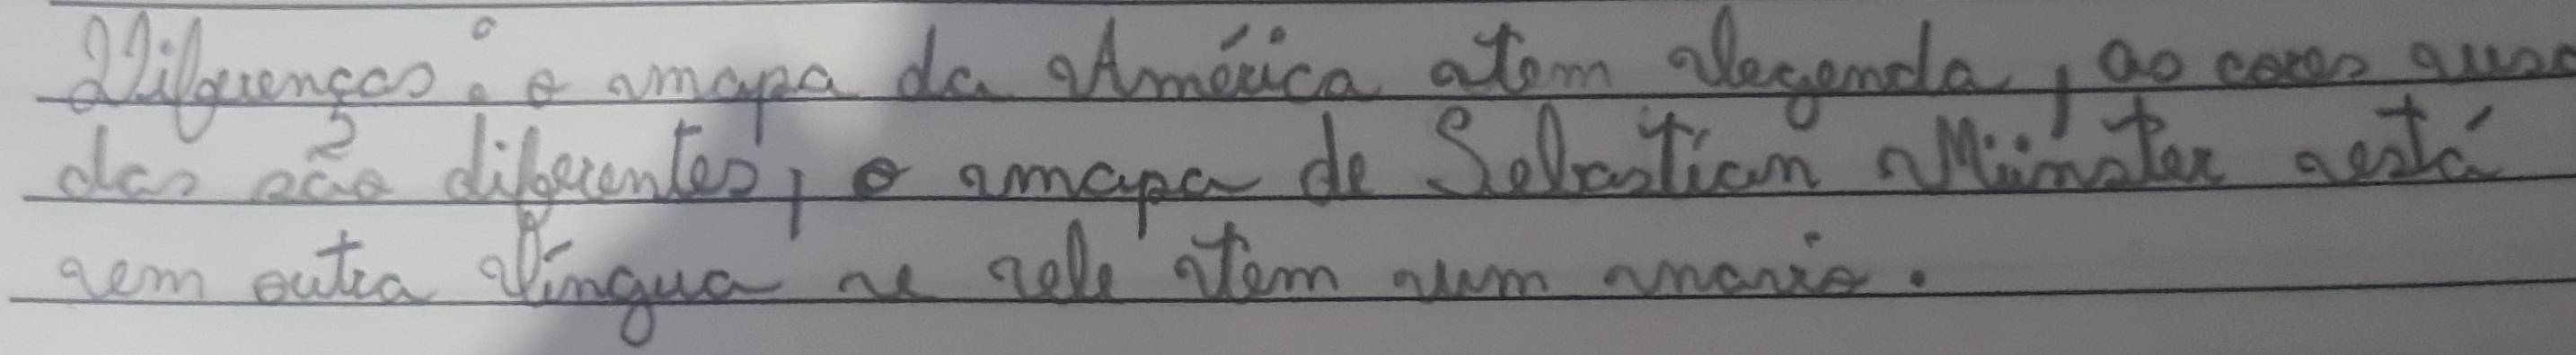 Diferenças: o mapa da América tem legenda, as cores usa
das são diferentes, o mapa de Sebastian Münster está
em outra língua e ele tem um navio.